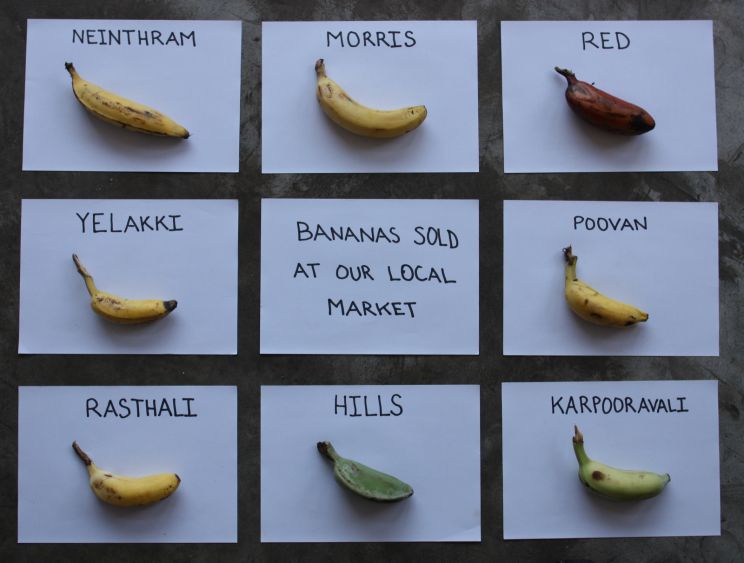 NEINTHRAM
MORRIS
RED
YELAKKI
BANANAS SOLD
AT OUR LOCAL
MARKET
POOVAN
RASTHALI
HILLS
KARPOORAVALI